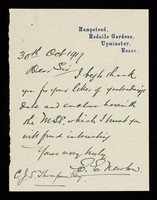 Hampstead,
Redaile Gardens,
Upminster,
Essex.
30th Oct 1917
Dear Sir, I beg to thank
you for your letter of yesterday's
date and enclose herewith
the MSS. which I trust you
will find interesting
Yours very truly
E. E. Newton
C.J.S. Thompson Esq